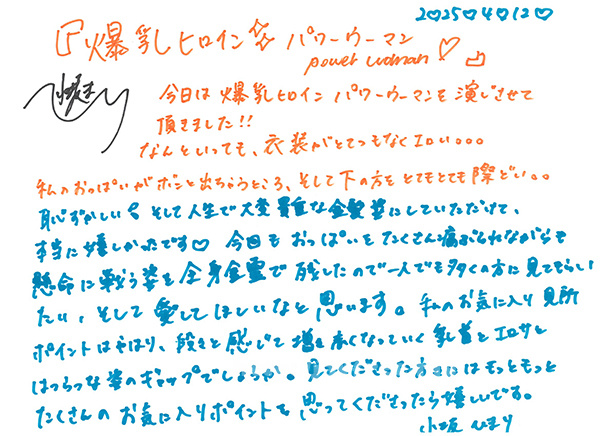 2♡025♡4♡12♡
『爆乳ヒロイン パワーウーマン
power woman♡』
今日は爆乳ヒロインパワーウーマンを演じさせて
頂きました!!
なんといっても、衣装がとてつもなくエロい。。。
私のおっぱいがボンと出ちゃうところ、そして下の方もとてもとても際どい。。
恥ずかしい そして人生で大変貴重な金髪姿にしていただけて、
本当に嬉しかったです♡ 今日もおっぱいをたくさん痛ぶられながらも
懸命に戦う姿を全身全霊で残したので一人でも多くの方に見てもらい
たい、そして愛してほしいなと思います。私のお気に入り見所
ポイントはやはり、段々と感じて増々広くなっていく乳首とエロさと
はつらつな姿のギャップでしょうか。見てくださった方々にはもっともっと
たくさんのお気に入りポイントを思ってくださったら嬉しいです。
小坂ひまり